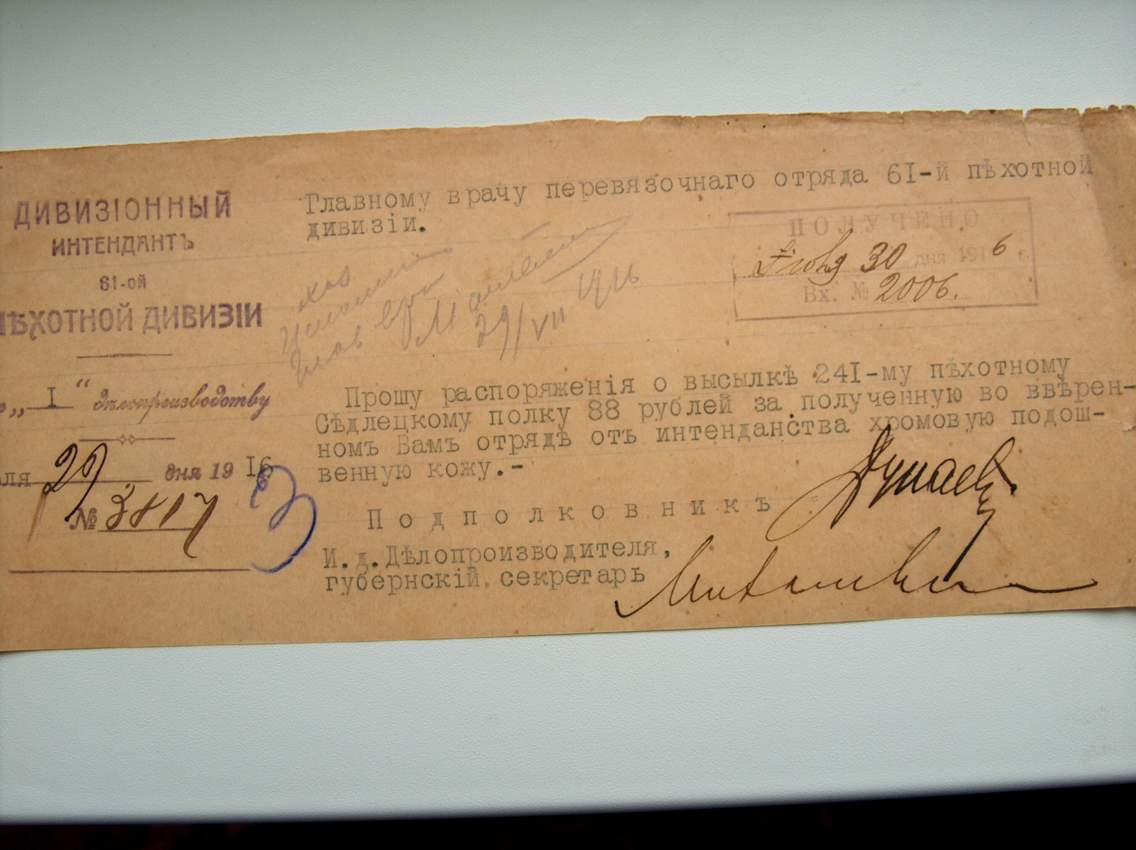 ДИВИЗІОННЫЙ
ИНТЕНДАНТЪ
61-ой
ПѢХОТНОЙ ДИВИЗІИ
„ I “ дѣлопроизводству
ля 29 дня 19 16
№ 3817
Главному врачу перевязочнаго отряда 61-й пѣхотной
дивизіи.
ПОЛУЧЕНО
30 дня 1916 г.
Вх. № 2006.
29/VII 1916
Прошу распоряженія о высылкѣ 241-му пѣхотному
Сѣдлецкому полку 88 рублей за полученную во ввѣрен-
номъ Вамъ отрядѣ отъ интенданства хромовую подош-
венную кожу.-
Подполковникъ
И.д.Дѣлопроизводителя,
губернскій секретарь